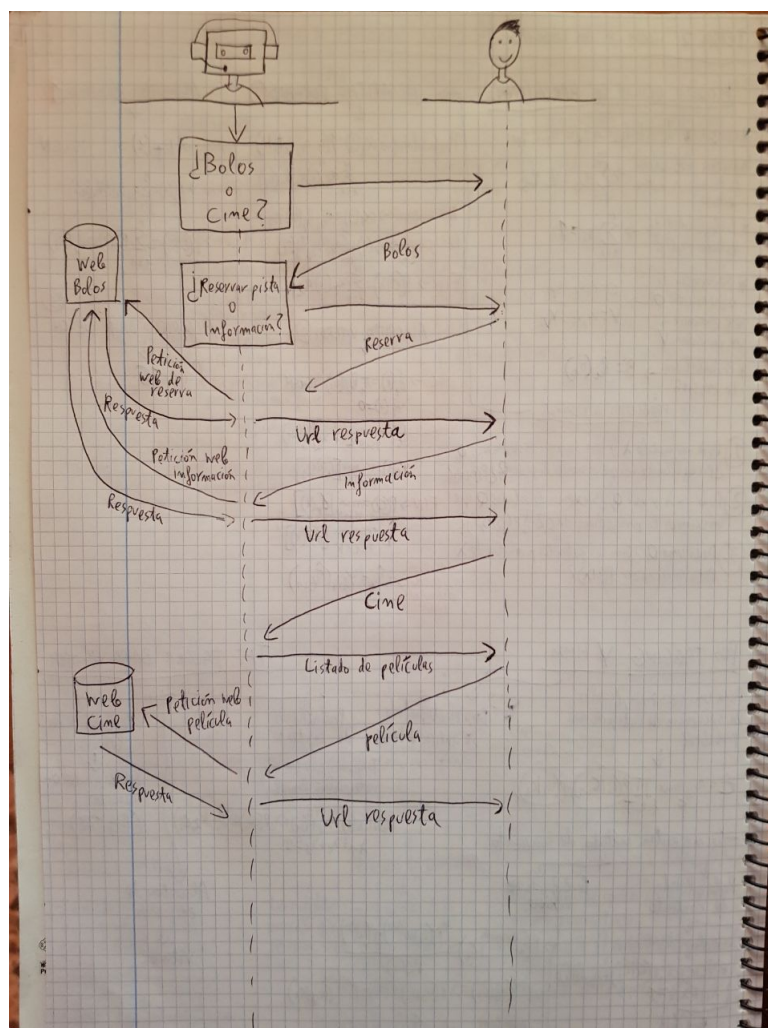 ¿Bolos
o
Cine?
Bolos
Web
Bolos
¿Reservar pista
o
Información?
Reserva
Petición
web de
reserva
Respuesta
Url respuesta
Petición web
información
Información
Respuesta
Url respuesta
Cine
Listado de películas
Web
Cine
Petición web
película
película
Respuesta
Url respuesta